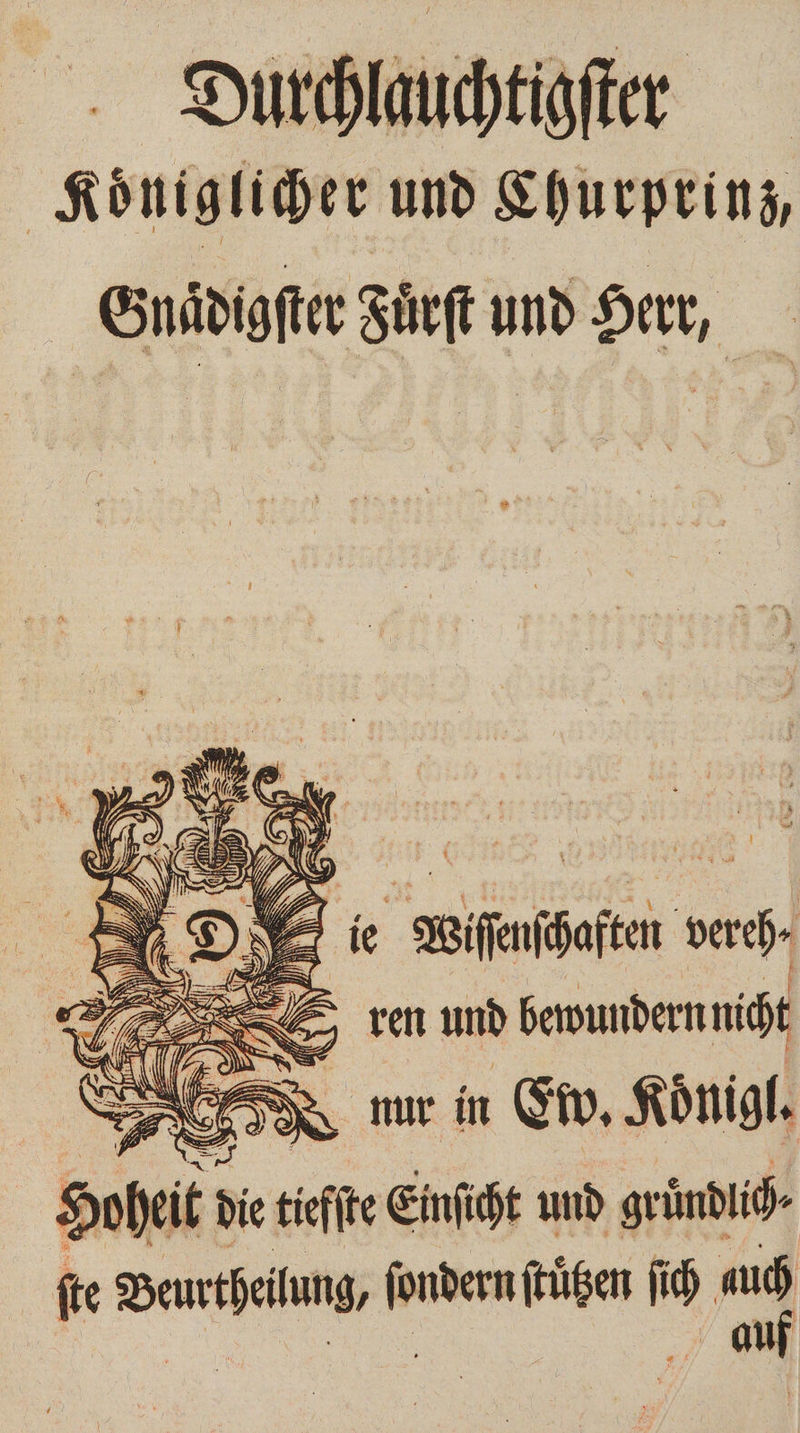 Durchlauchtigſter
Koͤniglicher und Churprinz,
Gnaͤdigſter Fuͤrſt und Herr,
Die Wiſſenſchaften vereh-
ren und bewundern nicht
nur in Ew. Koͤnigl.
Hoheit die tiefſte Einſicht und gruͤndlich-
ſte Beurtheilung, ſondern ſtuͤtzen ſich auch
auf